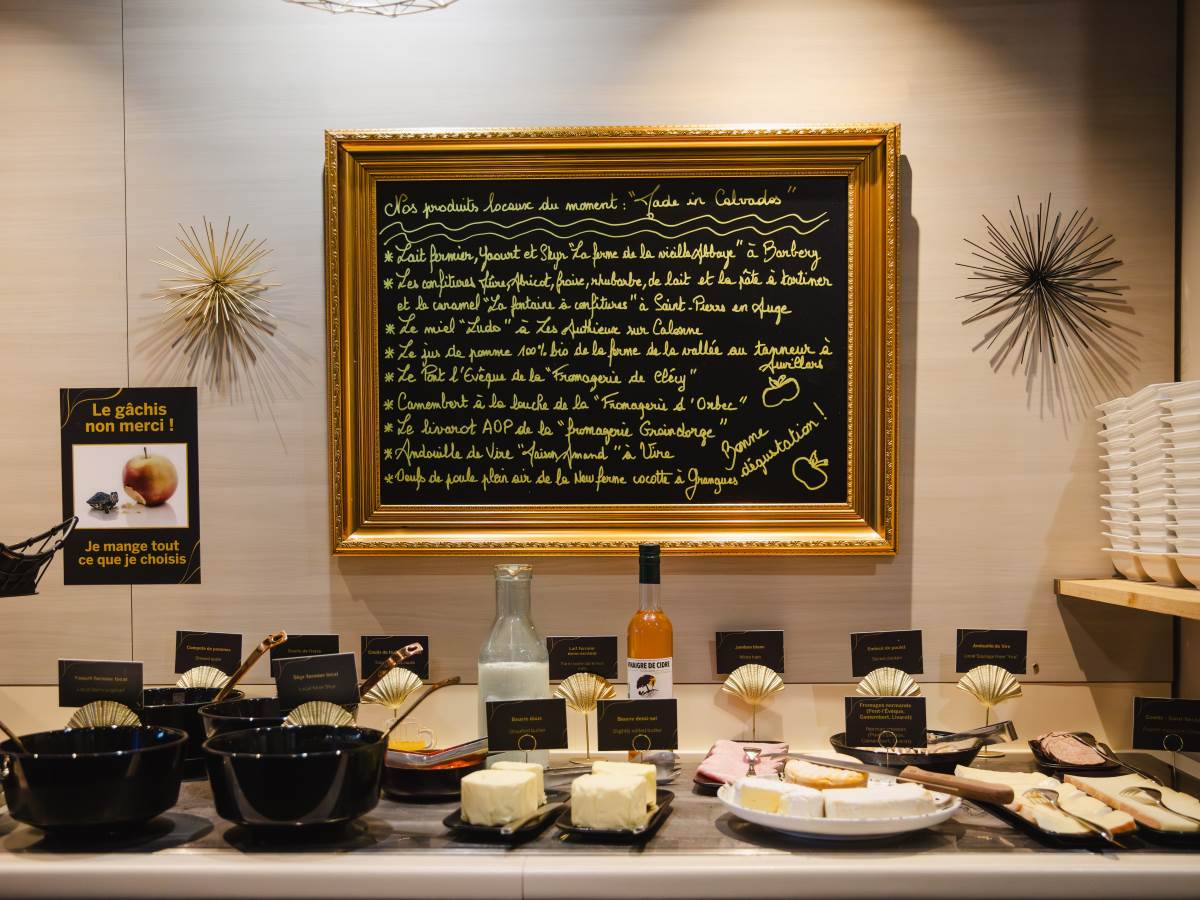 Nos produits locaux du moment : "Made in Calvados"
* Lait fermier, Yaourt et Skyr "La ferme de la vieille Abbaye" à Barbery
* Les confitures Mûre, Abricot, fraise, rhubarbe, de lait et la pâte à tartiner
et la caramel "La fontaine à confitures" à Saint-Pierre en Auge
* Le miel "Ludo" à Les Authieux sur Calonne
* Le jus de pomme 100% bio de la ferme de la vallée au tanneur à
Auvillars
* Le Pont l'Evêque de la "Fromagerie de Cléry"
* Camembert à la louche de la "Fromagerie d'Orbec"
* Le livarot AOP de la "fromagerie Graindorge"
* Andouille de Vire "Maison Amand" à Vire
* Oeufs de poule plein air de la New ferme cocotte à Grangues
Bonne
dégustation !
Le gâchis
non merci !
Je mange tout
ce que je choisis
Compote de pommes
Yaourt fermier local
Skyr fermier local
Local Skyr
Lait fermier
demi-écrémé
VINAIGRE DE CIDRE
Beurre doux
Unsalted butter
Beurre demi-sel
Slightly salted butter
Jambon blanc
White ham
Emincé de poulet
Andouille de Vire
Local Sausage from 'Vire'
Fromages normands
(Pont-l'Évêque,
Camembert, Livarot)